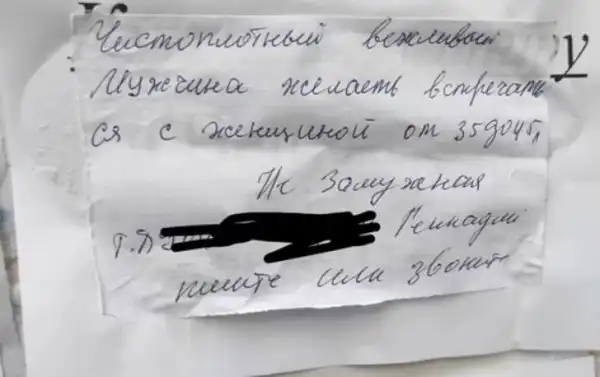 Чистоплотный вежливый
Мужчина желаеть встречать
ся с женщиной от 35 до 45 л
Не Замужная
Геннадий
пишите или звоните